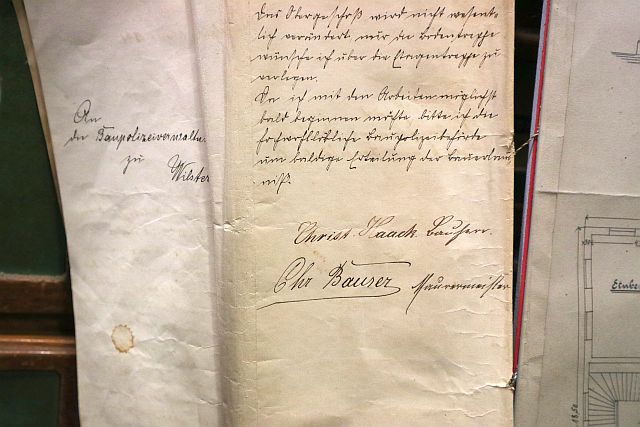 An
die Baupolizeiverwaltu
zu
Wilster
Das Obergeschoß wird nicht wesent-
lich verändert, nur die Bodentreppe
wünsche ich über die Etagentreppe zu
verlegen.
Da ich mit den Arbeiten möglichst
bald beginnen möchte, bitte ich die
Baupolizeibehörde
um baldige Erteilung der Bauerlaub-
niß.
Christ. Haack. Bauherr.
Chr Bauser Maurermeister